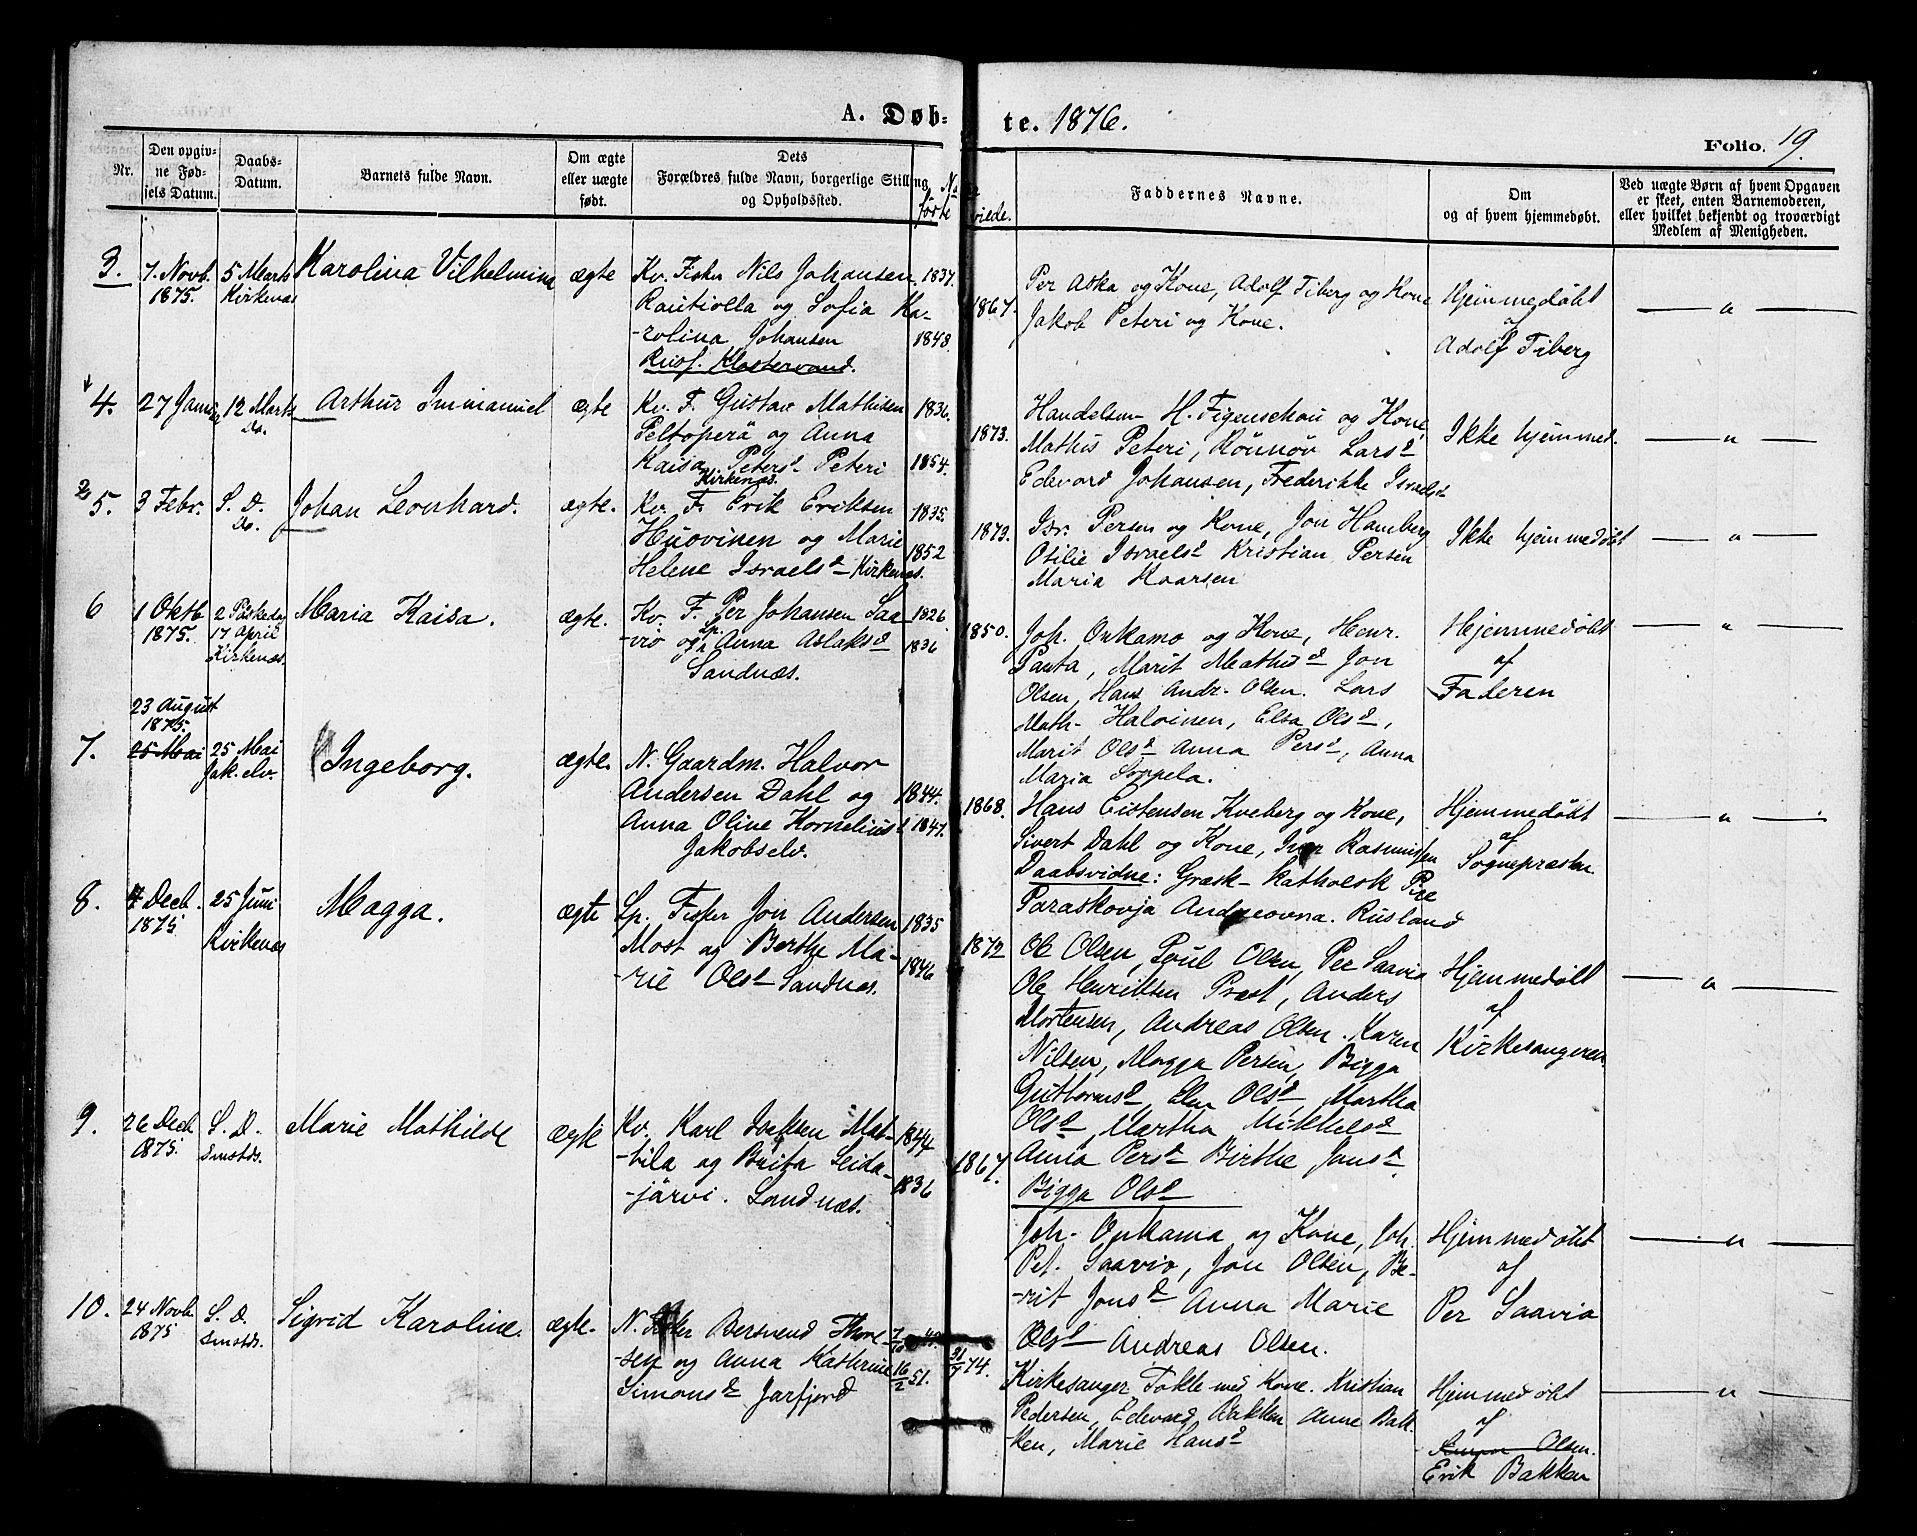 A. Døb-
te. 1876.
Folio. 19.
Nr.
Den opgiv-
ne Fød-
sels Datum.
Daabs-
Datum.
Barnets fulde Navn.
Om ægte
eller uægte
født.
Dets
Forældres fulde Navn, borgerlige Stilling
og Opholdssted.
Faddernes Navne.
Om
og af hvem hjemmedøbt.
Ved uægte Børn af hvem Opgaven
er skeet, enten Barnemoderen,
eller hvilket bekjendt og troværdigt
Medlem af Menigheden.
3.
7. Novb.
1875.
5 Marts
Kirkenæs
Karolina Vilhelmina
ægte
Kv. Fisker Nils Johansen
Rautiolla og Sofia Ka-
-rolina Johansen
Klostervand.
1837.
1848.
1867.
Per Aska og Kone, Adolf Fiberg og Kone
Jakob Peteri og Kone.
Hjemmedøbt
af
Adolf Fiberg
4.
27 Januar
12 Marts
Do.
Arthur Immanuel
ægte
Kv. F. Gustav Mathisen
Peltoperä og Anna
Kaisa Petersd Peteri
Kirkenæs.
1836.
1854.
1873.
Handelsm. H. Figenschou og Kone,
Mathis Peteri, Rönnøv Larsd
Edevard Johansen, Frederikke Israelsd
Ikke hjemmed.
5.
3 Febr.
S. D.
Do.
Johan Leonhard.
ægte.
Kv. F. Erik Eriksen
Huovinen og Marie
Helene Israelsd Kirkenæs.
1835.
1852
1873.
Isr. Persen og Kone, Jon Hamberg
Otilie Israelsd Kristian Persen
Maria Kaarsen
Ikke hjemmedøbt
6
1 Oktb
1875.
2 Paaskedag
17 April
Kirkenæs.
Maria Kaisa.
ægte.
Kv. F. Per Johansen Saa-
-vio og Lp. Anna Aslaksd
Sandnæs.
1826.
1836
1850.
Joh. Onkamo og Kone, Henr.
Panta, Marit Mathisd Jon
Olsen, Hans Andr. Olsen. Lars
Math- Halvinen, Elsa Olsd,
Marit Olsd Anna Persd, Anna
Maria Soppela.
Hjemmedøbt
af
Faderen
7.
23 August
1875.
25 Mai
25 Mai
Jak.elv.
Ingeborg.
ægte.
N. Gaardm. Halvor
Andersen Dahl og
Anna Oline Kornelius d
Jakobselv.
1844.
1847.
1868.
Hans Eistensen Kveberg og Kone,
Sivert Dahl og Kone, Iver Rasmussen
Daabsvidne: Græsk-katholsk Pige
Paraskovja Andreovna. Rusland
Hjemmedøbt
af
Sognepræsten
8.
7 Decb.
1875
25 Juni
Kirkenæs
Magga.
ægte
Lp. Fisker Jon Andersen
Most og Berthe Ma-
-rie Olsd Sandnæs.
1835
1846
1872
Ole Olsen, Poul Olsen, Per Saavio
Ole Henriksen Præst, Anders
Mortensen, Andreas Olsen. Karen
Nilsen, Magga Persen, Bigga
Guttormsd Elen Olsd Martha
Olsd Martha Mikkelsd
Anna Persd Birthe Jonsd
Bigga Olsd
Hjemmedøbt
af
Kirkesangeren
9.
26 Decb
1875.
S. D.
Smstds.
Marie Mathilde
ægte
Kv. Karl Isaksen Mat-
-tila og Brita Seida-
-järvi. Sandnæs.
1844
1836
1867.
Joh. Onkama og Kone, Joh.
Pet. Saavio, Jon Olsen, Be-
-rit Jonsd Anna Marie
Olsd Andreas Olsen.
Hjemmedøbt
af
Per Saavio
10.
24 Novb.
1875
S. D.
Smstds.
Sigrid Karoline.
ægte.
N. Fisker Bersvend Thore-
-sen og Anna Kathrine
Simonsd Jarfjord
16/2 51.
31/7 74.
Kirkesanger Fokle med Kone. Kristian
Pedersen, Edevard Bakken Anne Bak-
-ken, Marie Hansd
Hjemmedøbt
af
Olsen.
Erik Bakken